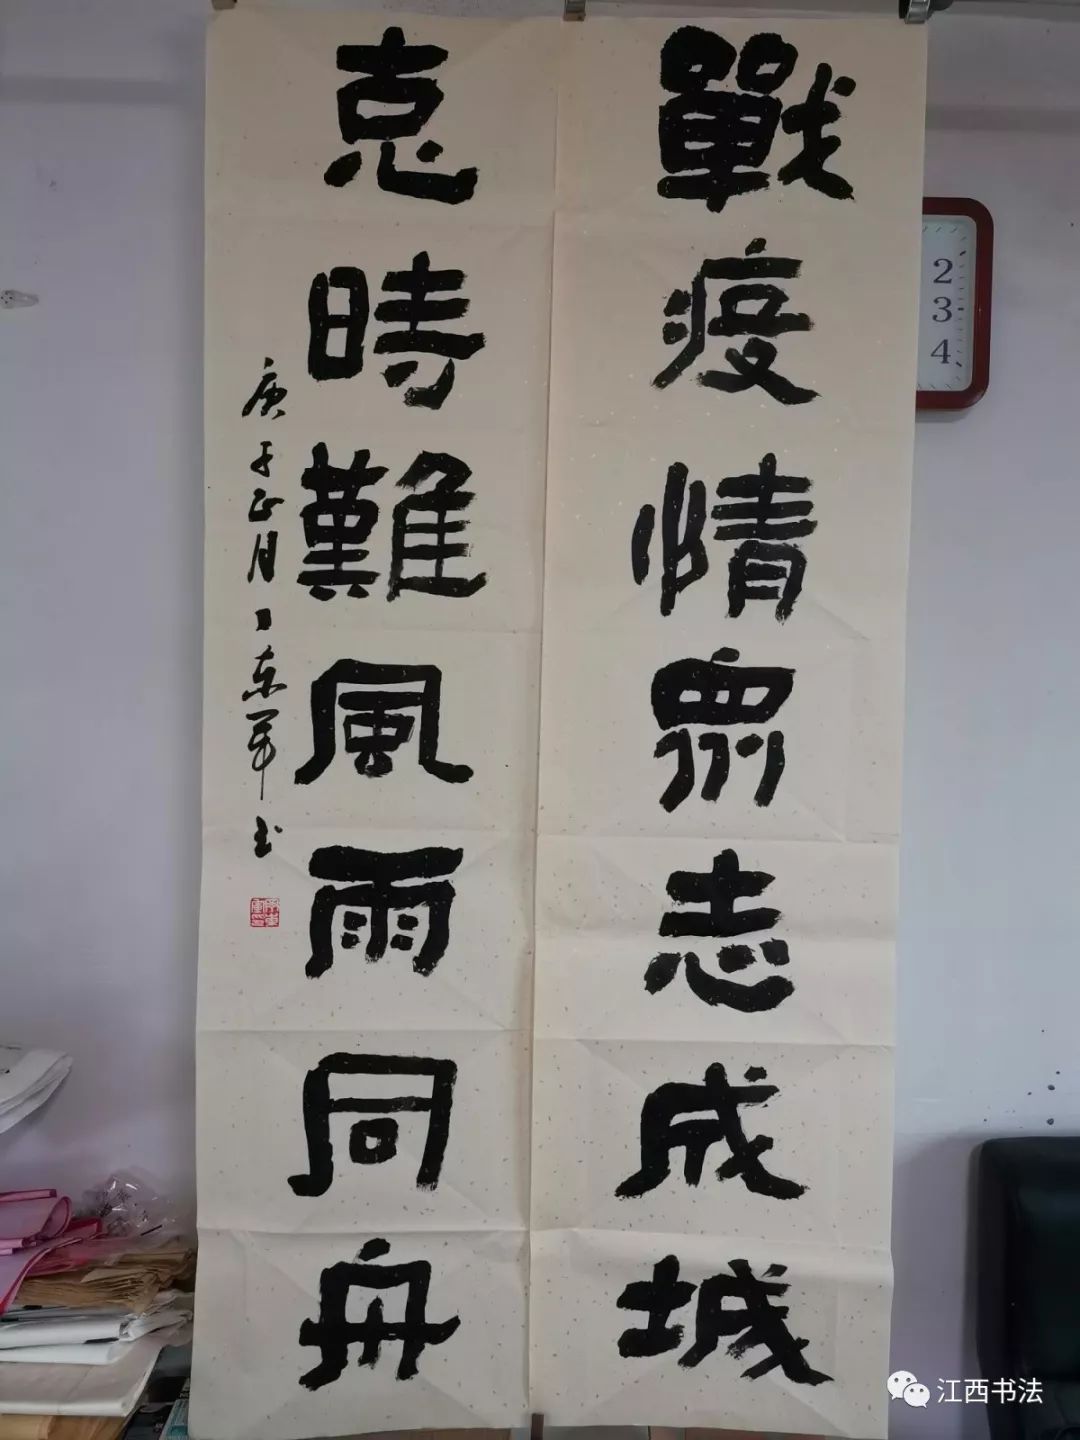 戰疫情衆志成城
克時難風雨同舟
庚子正月丁东军书
2
3
4
江西书法